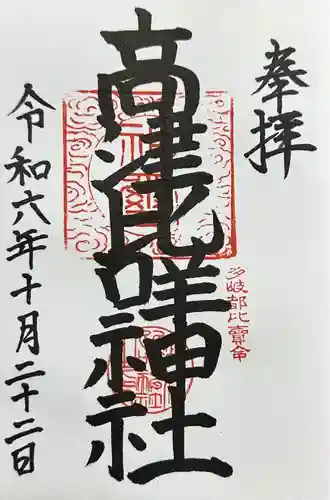 奉拝
多岐都比賣命
高津比咩神社
令和六年十月二十二日